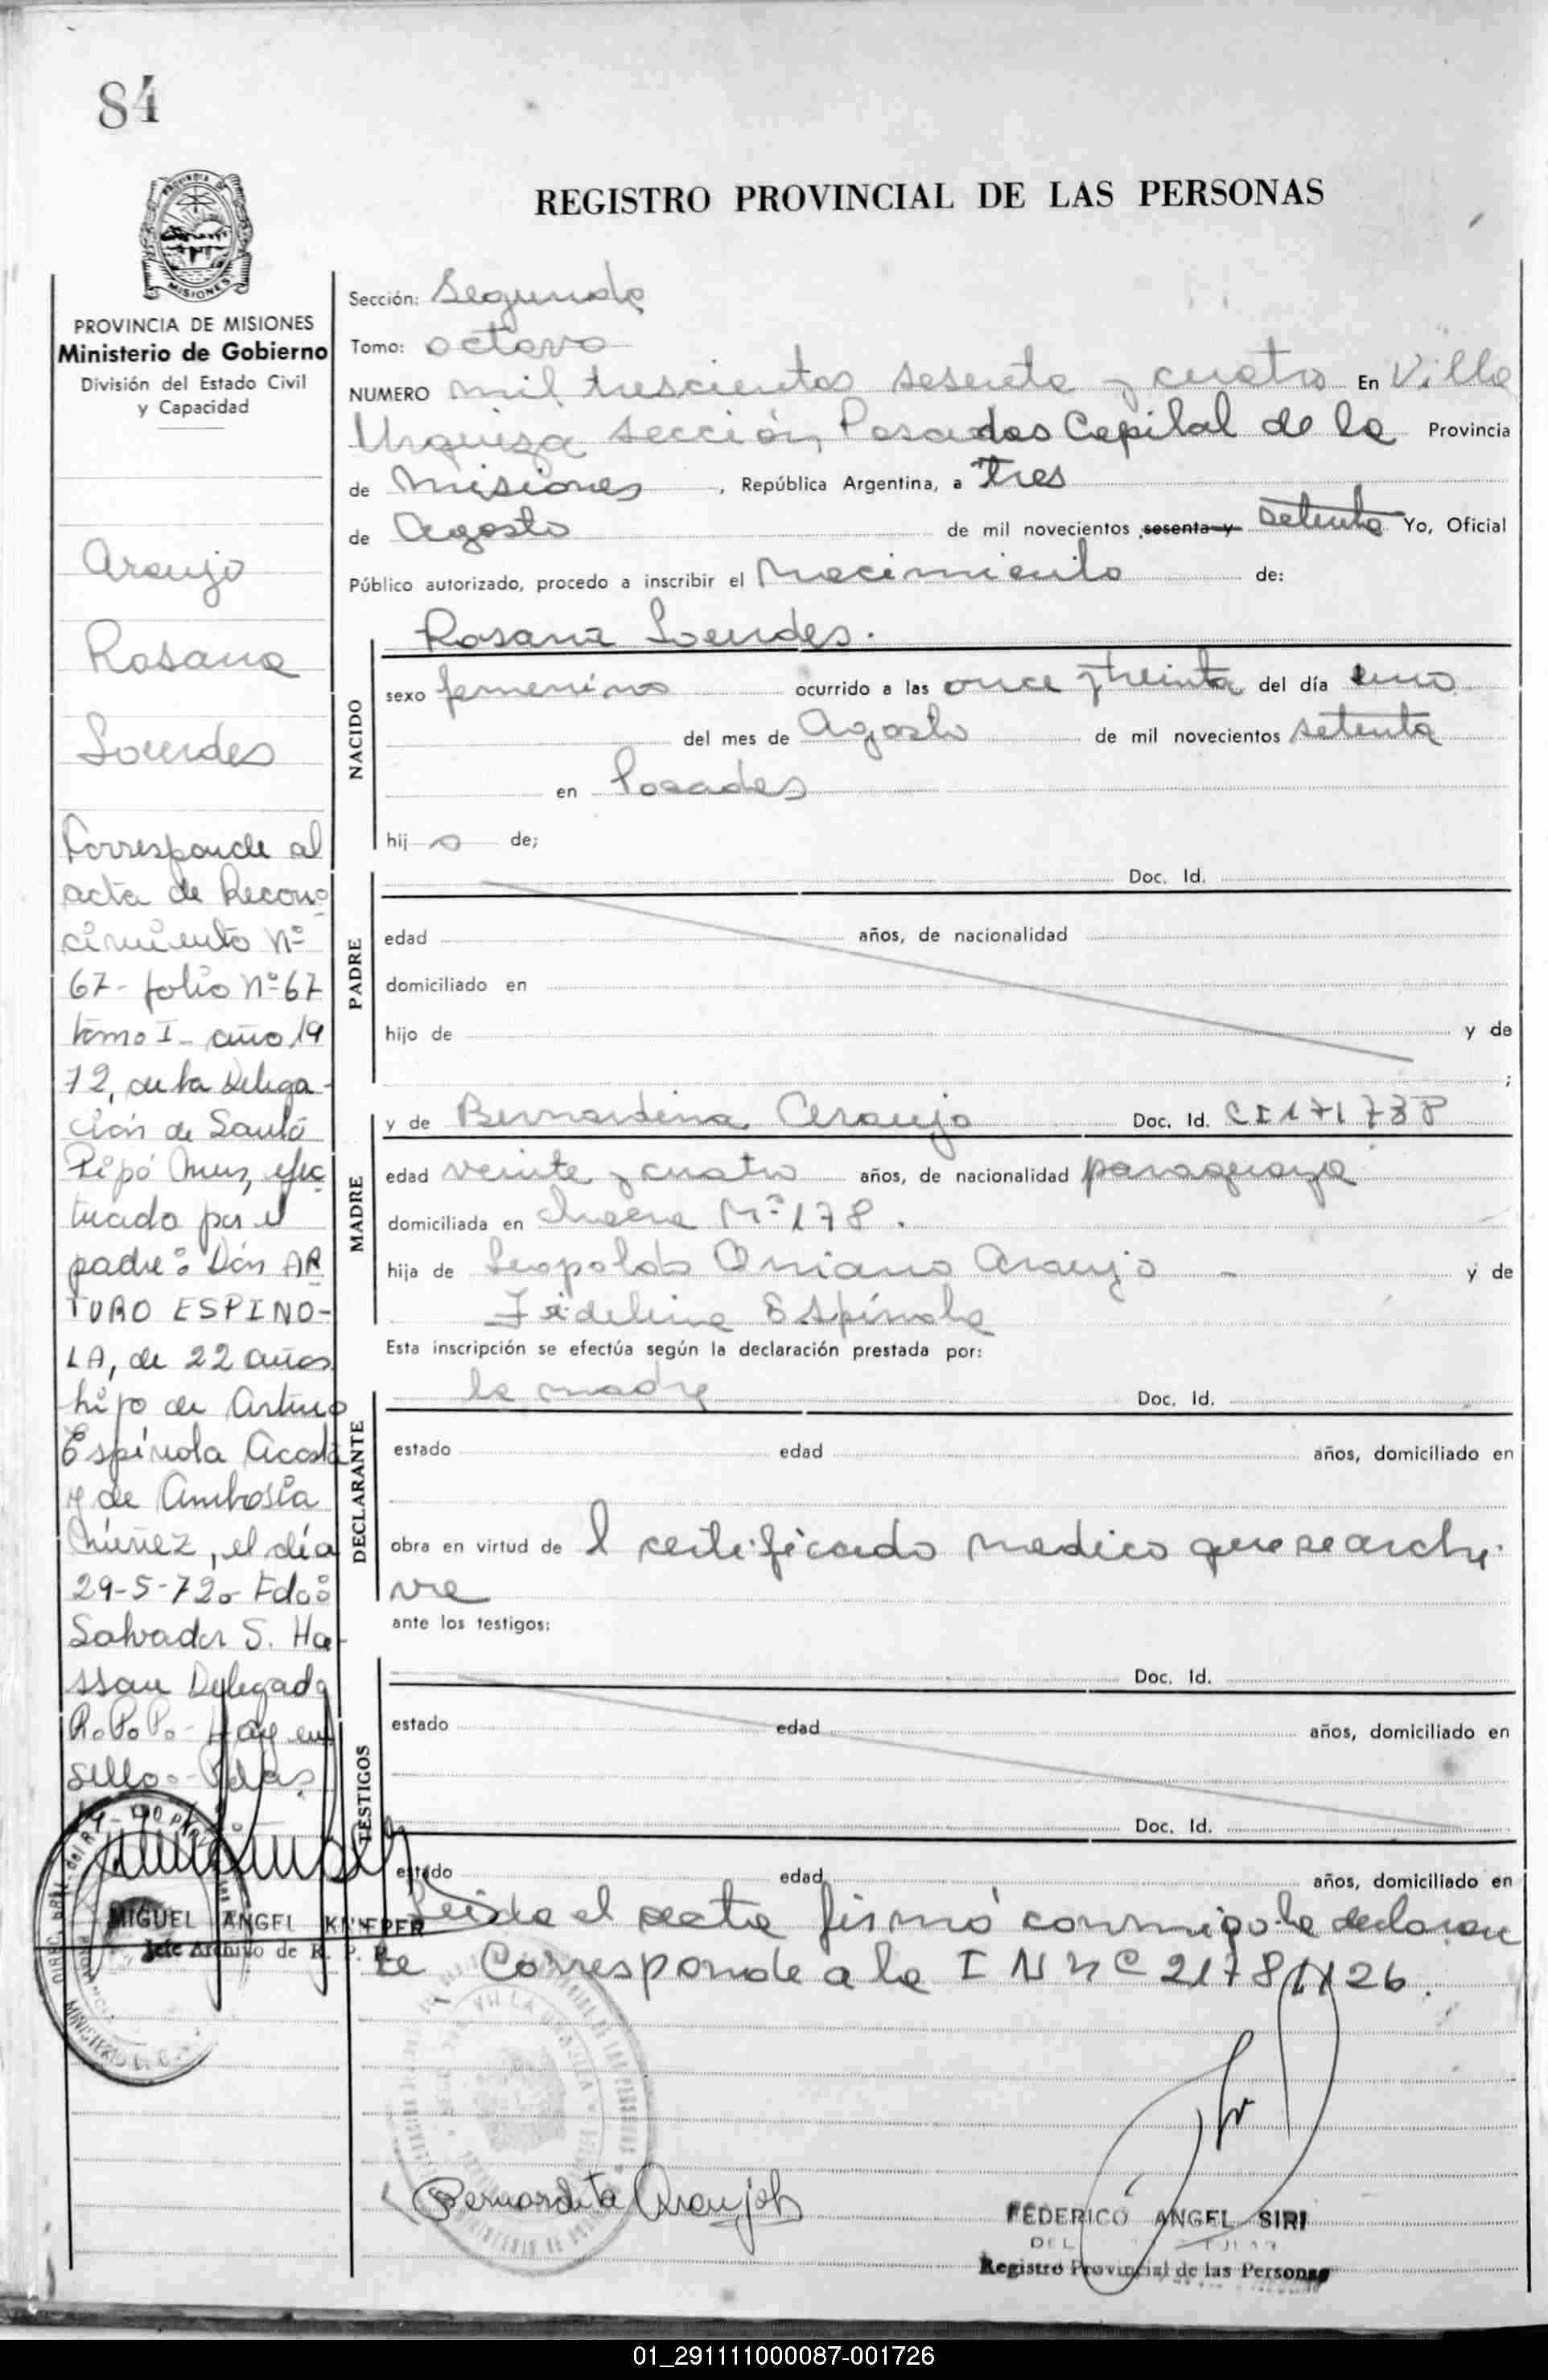 84
REGISTRO PROVINCIAL DE LAS PERSONAS
MISIONES
PROVINCIA DE MISIONES
Ministerio de Gobierno
División del Estado Civil
y Capacidad
Araujo
Rosana
Lourdes
Corresponde al
acta de Recono
cimiento Nº
67- folio Nº 67
tomo I- año 19
72, de la Delega-
ción de Santo
Pipó Mnes, efec
tuado por el
padre: Don AR
TURO ESPINO-
LA, de 22 años
hijo de Arturo
Espínola Acosta
y de Ambrosia
Núñez, el día
29-5-72- Fdo:
Salvador S. Ha-
ssan Delegado
R.P.P.- Hay un
sello.- Pdas,
MIGUEL ANGEL
Jefe Archivo de R. P. P.
Sección: Segunda
Tomo: octavo
NUMERO mil trescientos sesenta y cuatro En Villa
Urquiza sección, Posadas Capital de la Provincia
de Misiones, República Argentina, a tres
de Agosto de mil novecientos sesenta y setenta Yo, Oficial
Público autorizado, procedo a inscribir el Nacimiento de:
Rosana Lourdes.
NACIDO
sexo femenino ocurrido a las once y treinta del día uno
del mes de Agosto de mil novecientos setenta
en Posadas
hij a de;
PADRE
Doc. Id.
edad años, de nacionalidad
domiciliado en
hijo de y de
;
MADRE
y de Bernardina Araujo Doc. Id. CI 171738
edad veinte y cuatro años, de nacionalidad paraguaya
domiciliada en chacra Nº 178.
hija de Leopoldo Oniano Araujo - y de
Fidelina Espínola
Esta inscripción se efectúa según la declaración prestada por:
DECLARANTE
la madre Doc. Id.
estado edad años, domiciliado en
obra en virtud de l certificado medico que se archi-
va
ante los testigos:
TESTIGOS
Doc. Id.
estado edad años, domiciliado en
Doc. Id.
estado edad años, domiciliado en
Leida el acta firmó conmigo la declaran
te Corresponde a la I N
Bernardita Araujo
FEDERICO ANGEL SIRI
Registro Provincial de las Personas
01_291111000087-001726